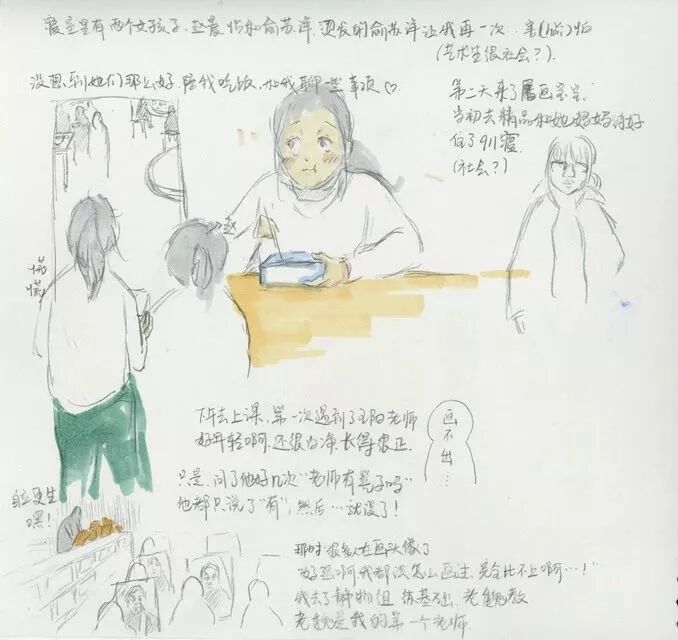 寝室里有两个女孩子,赵晨怡和俞苏洋,烫发的俞苏洋让我再一次 害(hài)怕
(艺术生很社会?).
没想到她们那么好,陪我吃饭,和我聊一些事项♡.
第二天来了屠画宝宝,
当初去精品和她妈妈讲好
住了911寝
(社会?)
→赵
苦
慌
下午去上课,第一次遇到了王阳老师
好年轻啊,还很白净,长得很正.
只是,问了他好几次"老师有凳子吗"
他都只说了"有",然后…就没了!
画不出…
自力更生
嘿!
那时很多人在画头像了
"好强啊我都没怎么画过,完全比不上啊…!"
我去了静物组 练基础,老魏教
老魏是我的第一个老师